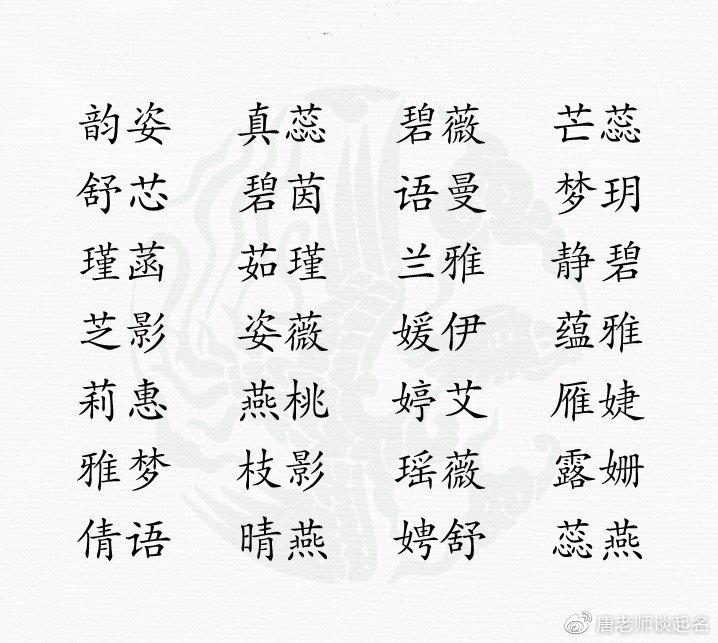 韵姿 真蕊 碧薇 芒蕊
舒芯 碧茵 语曼 梦玥
瑾菡 茹瑾 兰雅 静碧
芝影 姿薇 媛伊 蕴雅
莉惠 燕桃 婷艾 雁婕
雅梦 枝影 瑶薇 露姗
倩语 晴燕 娉舒 蕊燕
唐老师谈起名